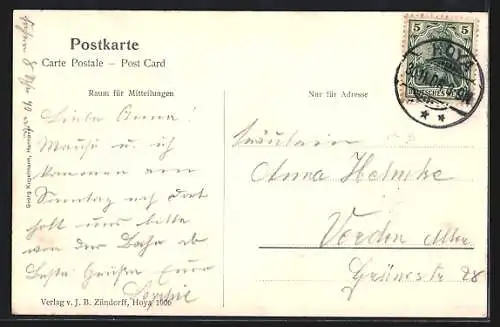 Postkarte
Carte Postale – Post Card
Raum für Mitteilungen
Nur für Adresse
5 5
HOYA
DEUTSCHES
Liebe Anna!
Mausi u. ich
kommen am
Sonntag nach dort
holt uns bitte
von der Bahn ab
Beste Grüße Eure
Sophie
Fräulein
Anna Helmke
Verden Aller
Grünestr 28
Georg Kugelmann,
Verlag v. J. B. Zündorff, Hoya 1906